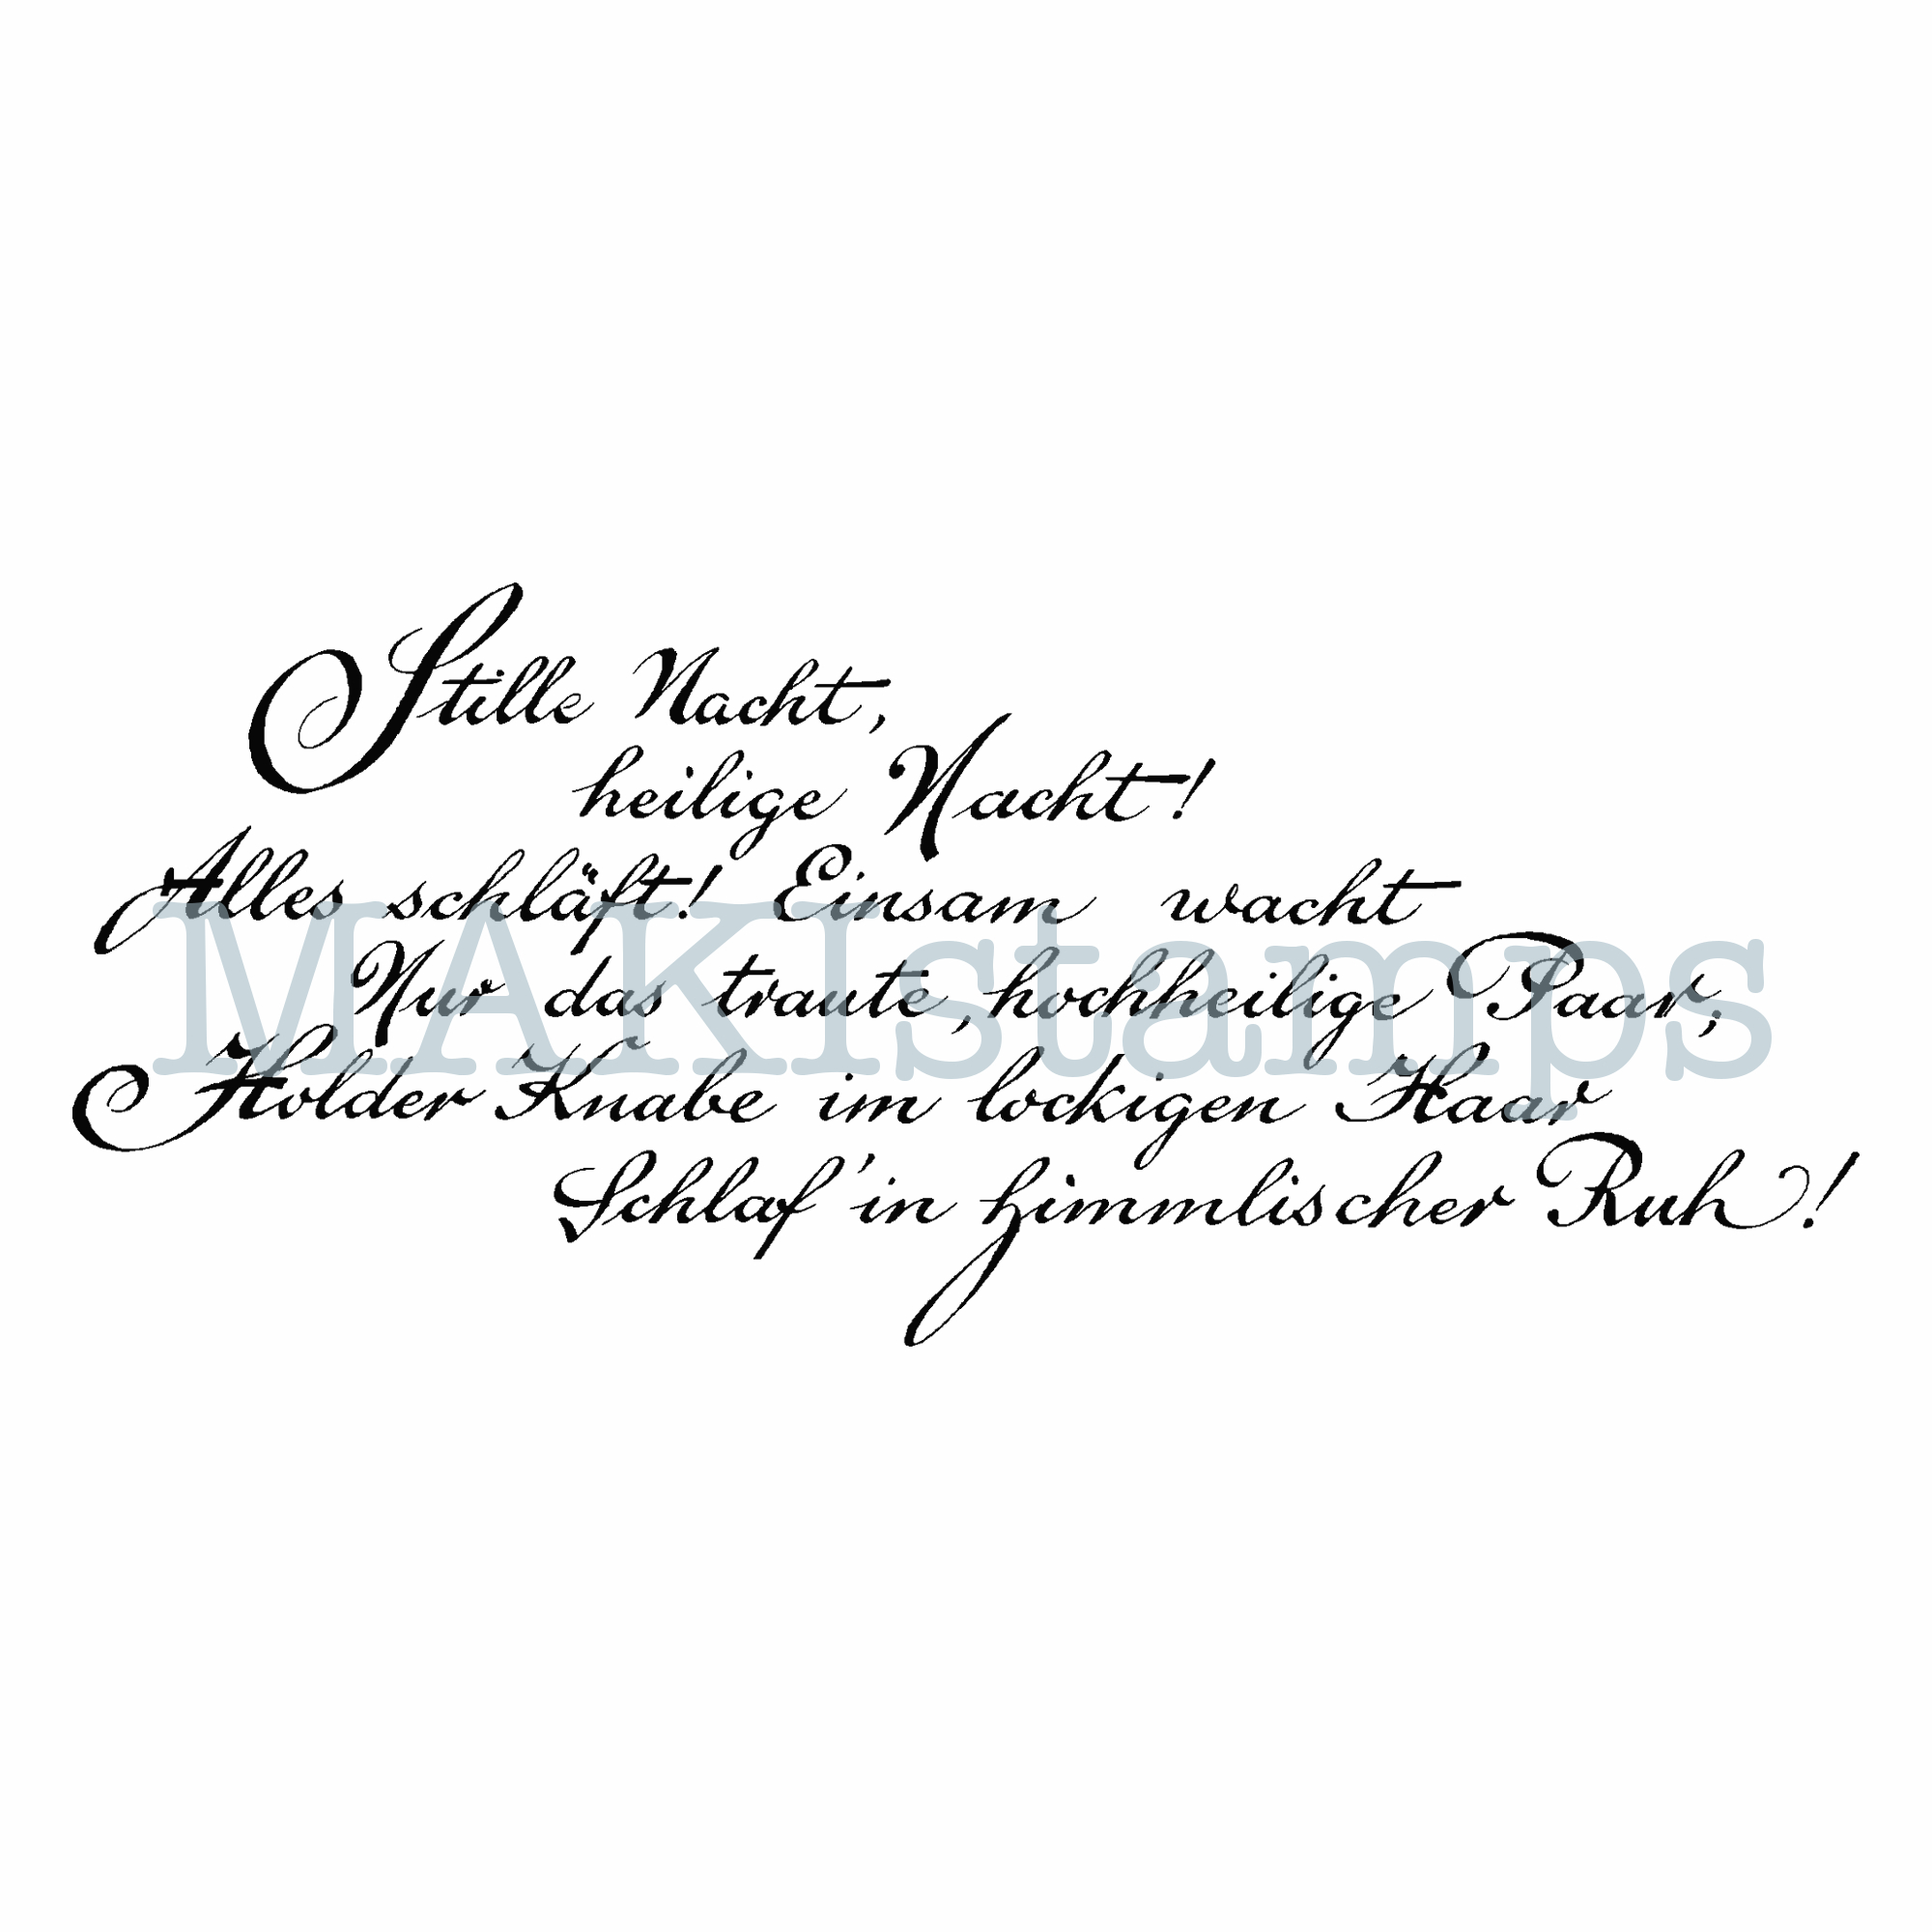 Stille Nacht,
heilige Nacht!
Alles schläft! Einsam wacht
Nur das traute, hochheilige Paar,
Holder Knabe im lockigen Haar
Schlaf' in himmlischer Ruh!
MAKIstamps